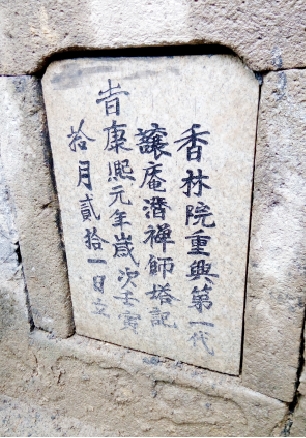 香林院重興第一代
讓庵潛禪師塔記
旹康熙元年歲次壬寅
拾月貳拾一日立